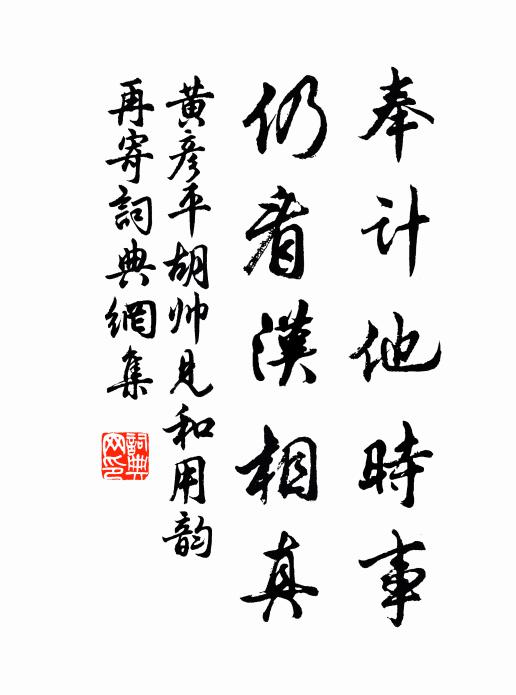 奉计他時事
仍看漢相真
黄彦平胡帅见和用韵
再寄詞典網集
詞典网印